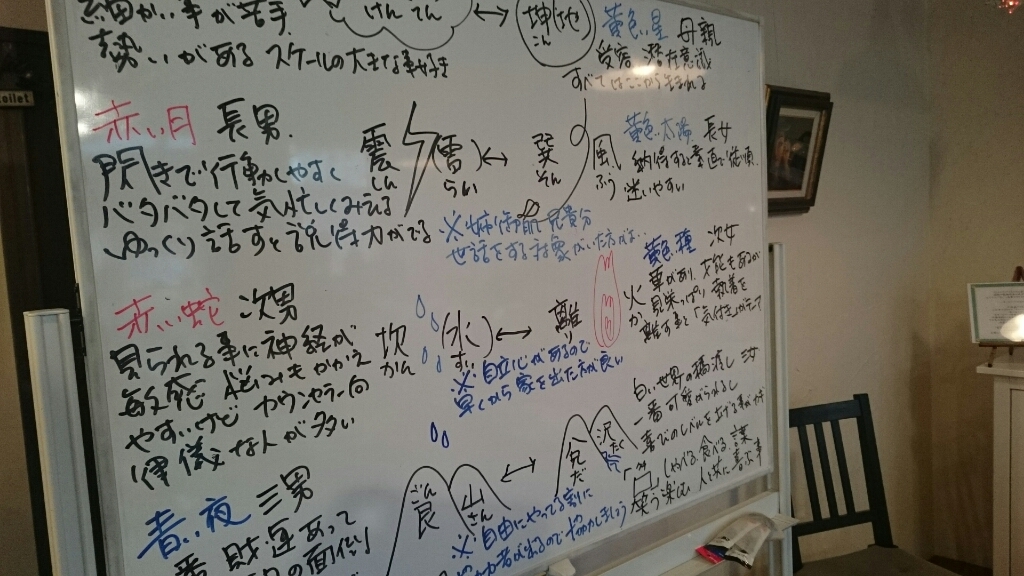 細かい事が苦手
勢いがある スケールの大きな事好き
けんてん
坤(地)
こん
黄色い星 母親
受容 潜在意識
すべてはここから生まれる
赤い月 長男
閃きで行動しやすく
バタバタして気忙しくみえる
ゆっくり話すと説得力がでる
震 (雷)
しん らい
巽 風
そん ふう
黄色 太陽 長女
納得すると素直で従順
迷いやすい
※姉御肌 兄貴分
世話をする対象がいた方がよい
赤い蛇 次男
見られる事に神経が
敏感 悩みをかかえ
やすいけど カウンセラー向
律儀な人が多い
坎 (水)
かん すい
離 火
り か
※自立心があるので
早くから家を出た方が良い
黄色い種 次女
華があり、才能もあるが
見栄っぱり 執着を
離す事と「気付き」が
青い夜 三男
一番 財運あって
の面倒
艮 山
ごん さん
兌 沢
だ たく
※自由にやってる割に
白い世界の橋渡し 三女
一番可愛がられるし
喜びの
しゃべる 食べる
笑う 楽しむ 人と共に喜ぶ事
toilet